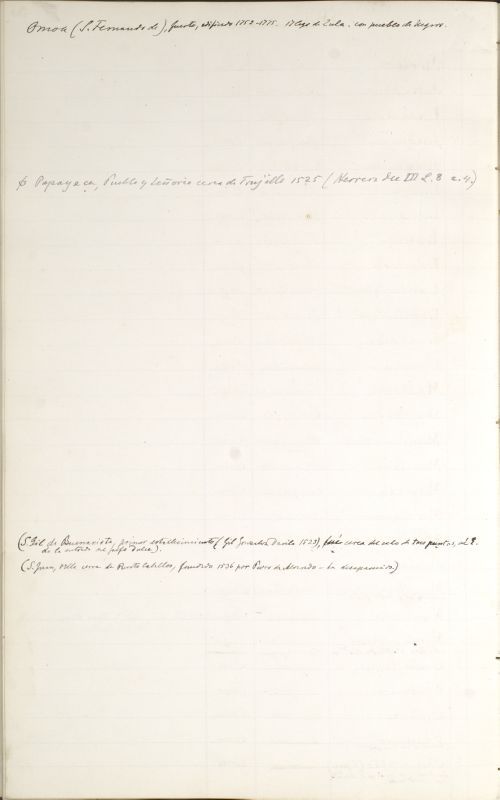 Omoa (S. Fernando de), fuerte, edificado 1752-1775. con pueblo de negros.
Papayeca, Pueblo y Señorio cerca de Trujillo 1525 (Herrera Dec III L. 8 c. 4.)
(S Gil de Buenavista, primer establecimiento (Gil Gonzalez Davila 1523), fué cerca del cabo de tres puntas, al
de la entrada del golfo Dulce).
(S. Juan, Villa cerca de Puerto Caballos, fundado 1536 por Pedro de Alvarado - ha desaparecido)